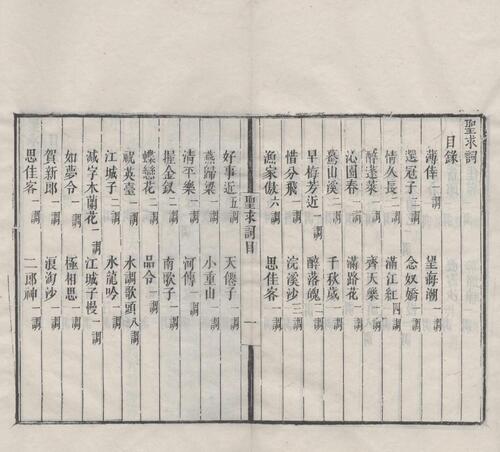 聖求詞
目錄
薄倖一調 望海潮一調
選冠子二調 念奴嬌一調
情久長二調 滿江紅四調
醉蓬萊一調 齊天樂一調
沁園春一調 滿路花一調
驀山溪二調 千秋歲一調
早梅芳近一調 醉落魄一調
惜分飛一調 浣溪沙三調
漁家傲六調 思佳客一調
聖求詞目 一
好事近五調 天僊子一調
燕歸梁一調 小重山一調
清平樂一調 河傳一調
握金釵一調 南歌子一調
蝶戀花一調 品令一調
祝英臺一調 水調歌頭八調
江城子二調 水龍吟一調
減字木蘭花一調 江城子慢一調
如夢令一調 極相思一調
賀新郎一調 浪淘沙一調
思佳客一調 二郎神一調